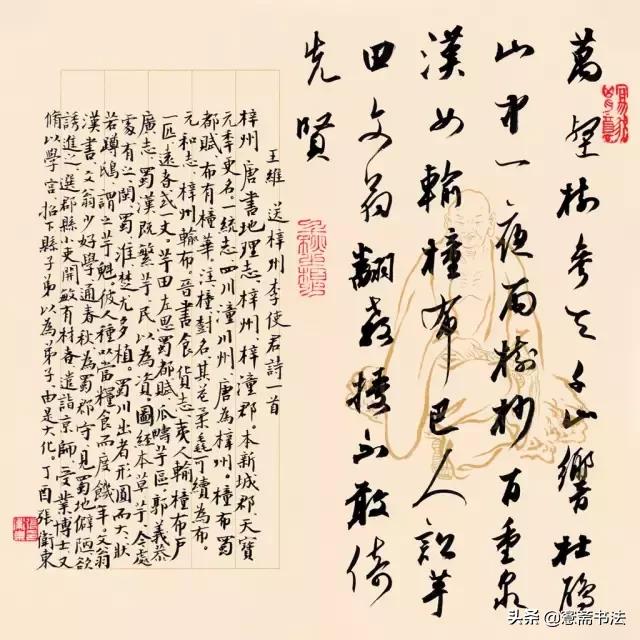 萬壑樹參天千山響杜鵑
山中一夜雨樹杪百重泉
漢女輸橦布巴人訟芋
田文翁翻教授不敢倚
先賢
王維 送梓州李使君詩一首
梓州唐書地理志梓州梓潼郡。本新城郡天寶
元季更名一統志四川潼川州唐為梓州。橦布蜀
都賦布有橦華注橦樹名其花柔毳可績為布。
元和志梓州輸布。晉書食貨志夷人輸橦布戶
一匹遠者或一丈。芋田左思蜀都賦瓜疇芋區郭義恭
廣志蜀漢既繁芋民以為資圖經本草芋今處
處有之閩蜀淮楚尤多植。蜀川出者形圓而大狀
若蹲鴟謂之芋魁彼人種以當糧食而度饑年。文翁
漢書文翁少好學通春秋為蜀郡守見蜀地僻陋欲
誘進之選郡縣小吏開敏有材者遣詣京師受業博士又
脩以學宮招下縣子弟以為弟子由是大化。丁酉張衛東
头条@憲斋书法